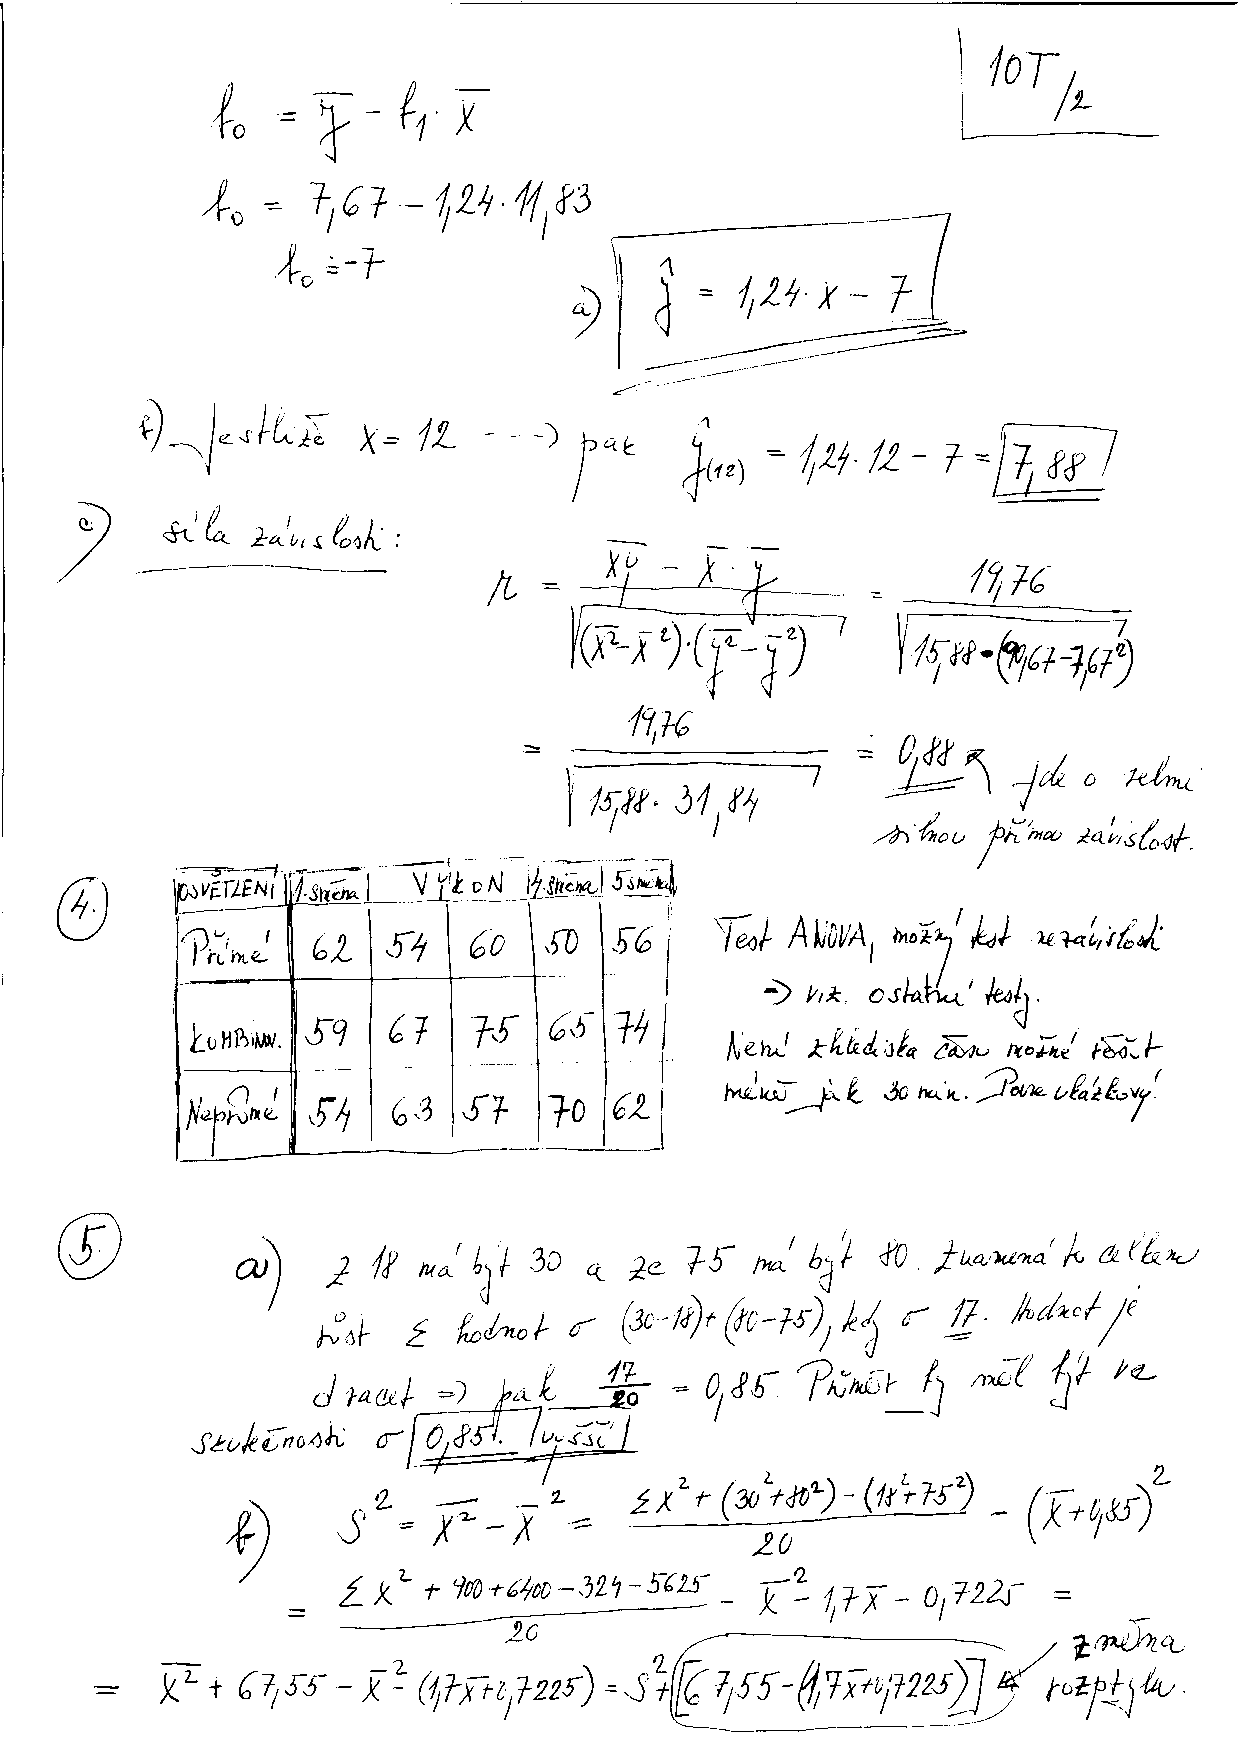 10T/2
b₀ = ȳ - b₁·x̄
b₀ = 7,67 - 1,24·11,83
b₀ ≐ -7
a) ŷ = 1,24·x - 7
b) Jestliže x = 12 ---> pak ŷ(12) = 1,24·12 - 7 = 7,88
c) síla závislosti:
r = (x̄ȳ - x̄·ȳ) / √((x̄² - x̄²)·(ȳ² - ȳ²)) = 19,76 / √(15,88·(90,67-7,67²))
= 19,76 / √(15,88·31,84) = 0,88 jde o velmi
silnou přímou závislost.
4. OSVĚTLENÍ 1.směna VÝKON 4.směna 5směna
Přímé 62 54 60 50 56
KOMBINOV. 59 67 75 65 74
Nepřímé 54 63 57 70 62
Test ANOVA, možný test nezávislosti
-> viz. ostatní testy.
Není z hlediska času možné řešit
méně jak 30 min. Pouze ukázkový!
5. a) z 18 má být 30 a ze 75 má být 80. Znamená to celkem
růst Σ hodnot o (30-18)+(80-75), tedy o 17. Hodnot je
dvacet => pak 17/20 = 0,85. Průměr by měl být ve
skutečnosti o 0,85 vyšší
b) S² = x̄² - x̄² = (Σx² + (30²+80²) - (18²+75²)) / 20 - (x̄+0,85)²
= (Σx² + 900+6400-324-5625) / 20 - x̄² - 1,7x̄ - 0,7225 =
= x̄² + 67,55 - x̄² - (1,7x̄+0,7225) = S² + [67,55-(1,7x̄+0,7225)] změna
rozptylu.